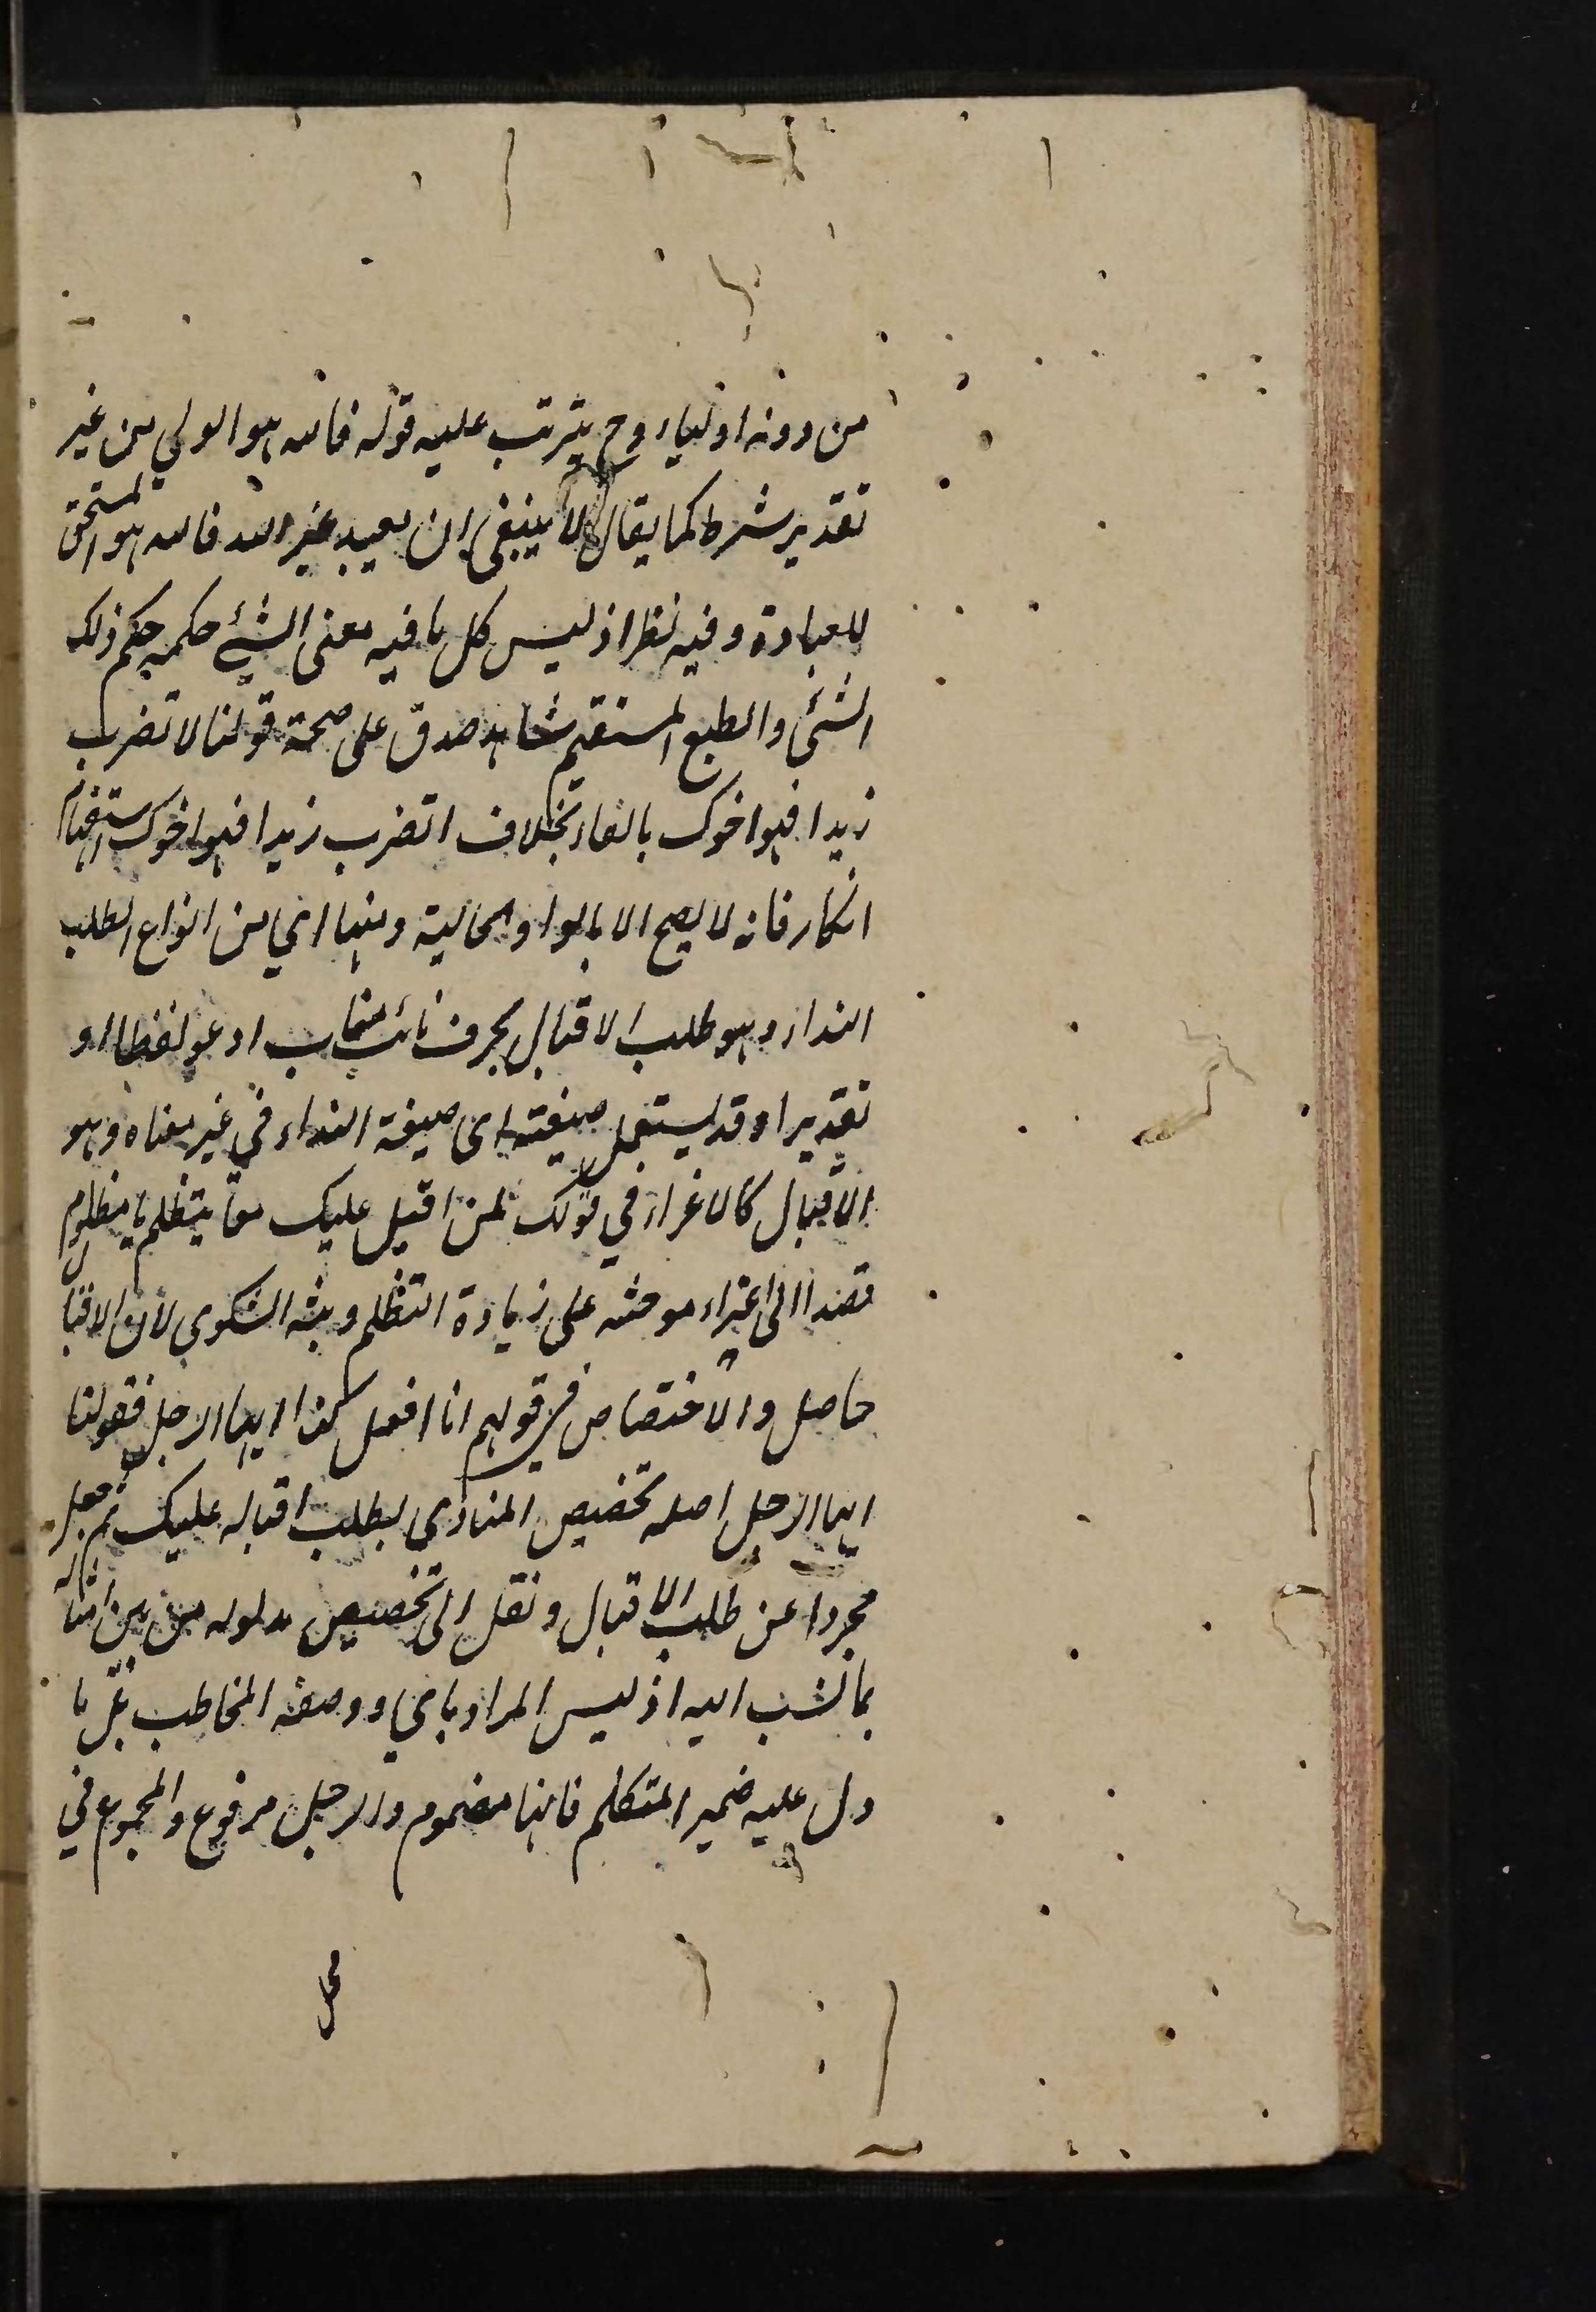 من دونه اولياء وح يترتب عليه قوله فالله هو الولي من غير
تقدير شرط كما يقال لا ينبغي ان يعبد غير الله فالله هو المستحق
للعبادة وفيه نظر اذ ليس كل ما فيه معنى الشئ حكمه حكم ذلك
الشئ والطبع المستقيم شاهد صدق على صحة قولنا لا تضرب
زيدا فهو اخوك بالفاء بخلاف اتضرب زيدا فهو اخوك استفهام
انكار فانه لا يصح الا بالواو الحالية ومنها اي من انواع الطلب
النداء وهو طلب الاقبال بحرف نائب مناب ادعو لفظا او
تقديرا وقد يستعمل صيغته اى صيغة النداء في غير معناه وهو
الاقبال كالاغراء في قولك لمن اقبل عليك يتظلم يا مظلوم
قصدا الى اغراءه وحثه على زيادة التظلم وبث الشكوى لان الاقبال
حاصل والاختصاص في قولهم انا افعل كذا ايها الرجل فقولنا
ايها الرجل اصله تخصيص المنادى لطلب اقباله عليك ثم جعل
مجردا عن طلب الاقبال ونقل الى تخصيص مدلوله من بين امثاله
بما نسب اليه اذ ليس المراد باي ووصفه المخاطب بل ما
دل عليه ضمير المتكلم فايها مضموم والرجل مرفوع والمجموع في
محل